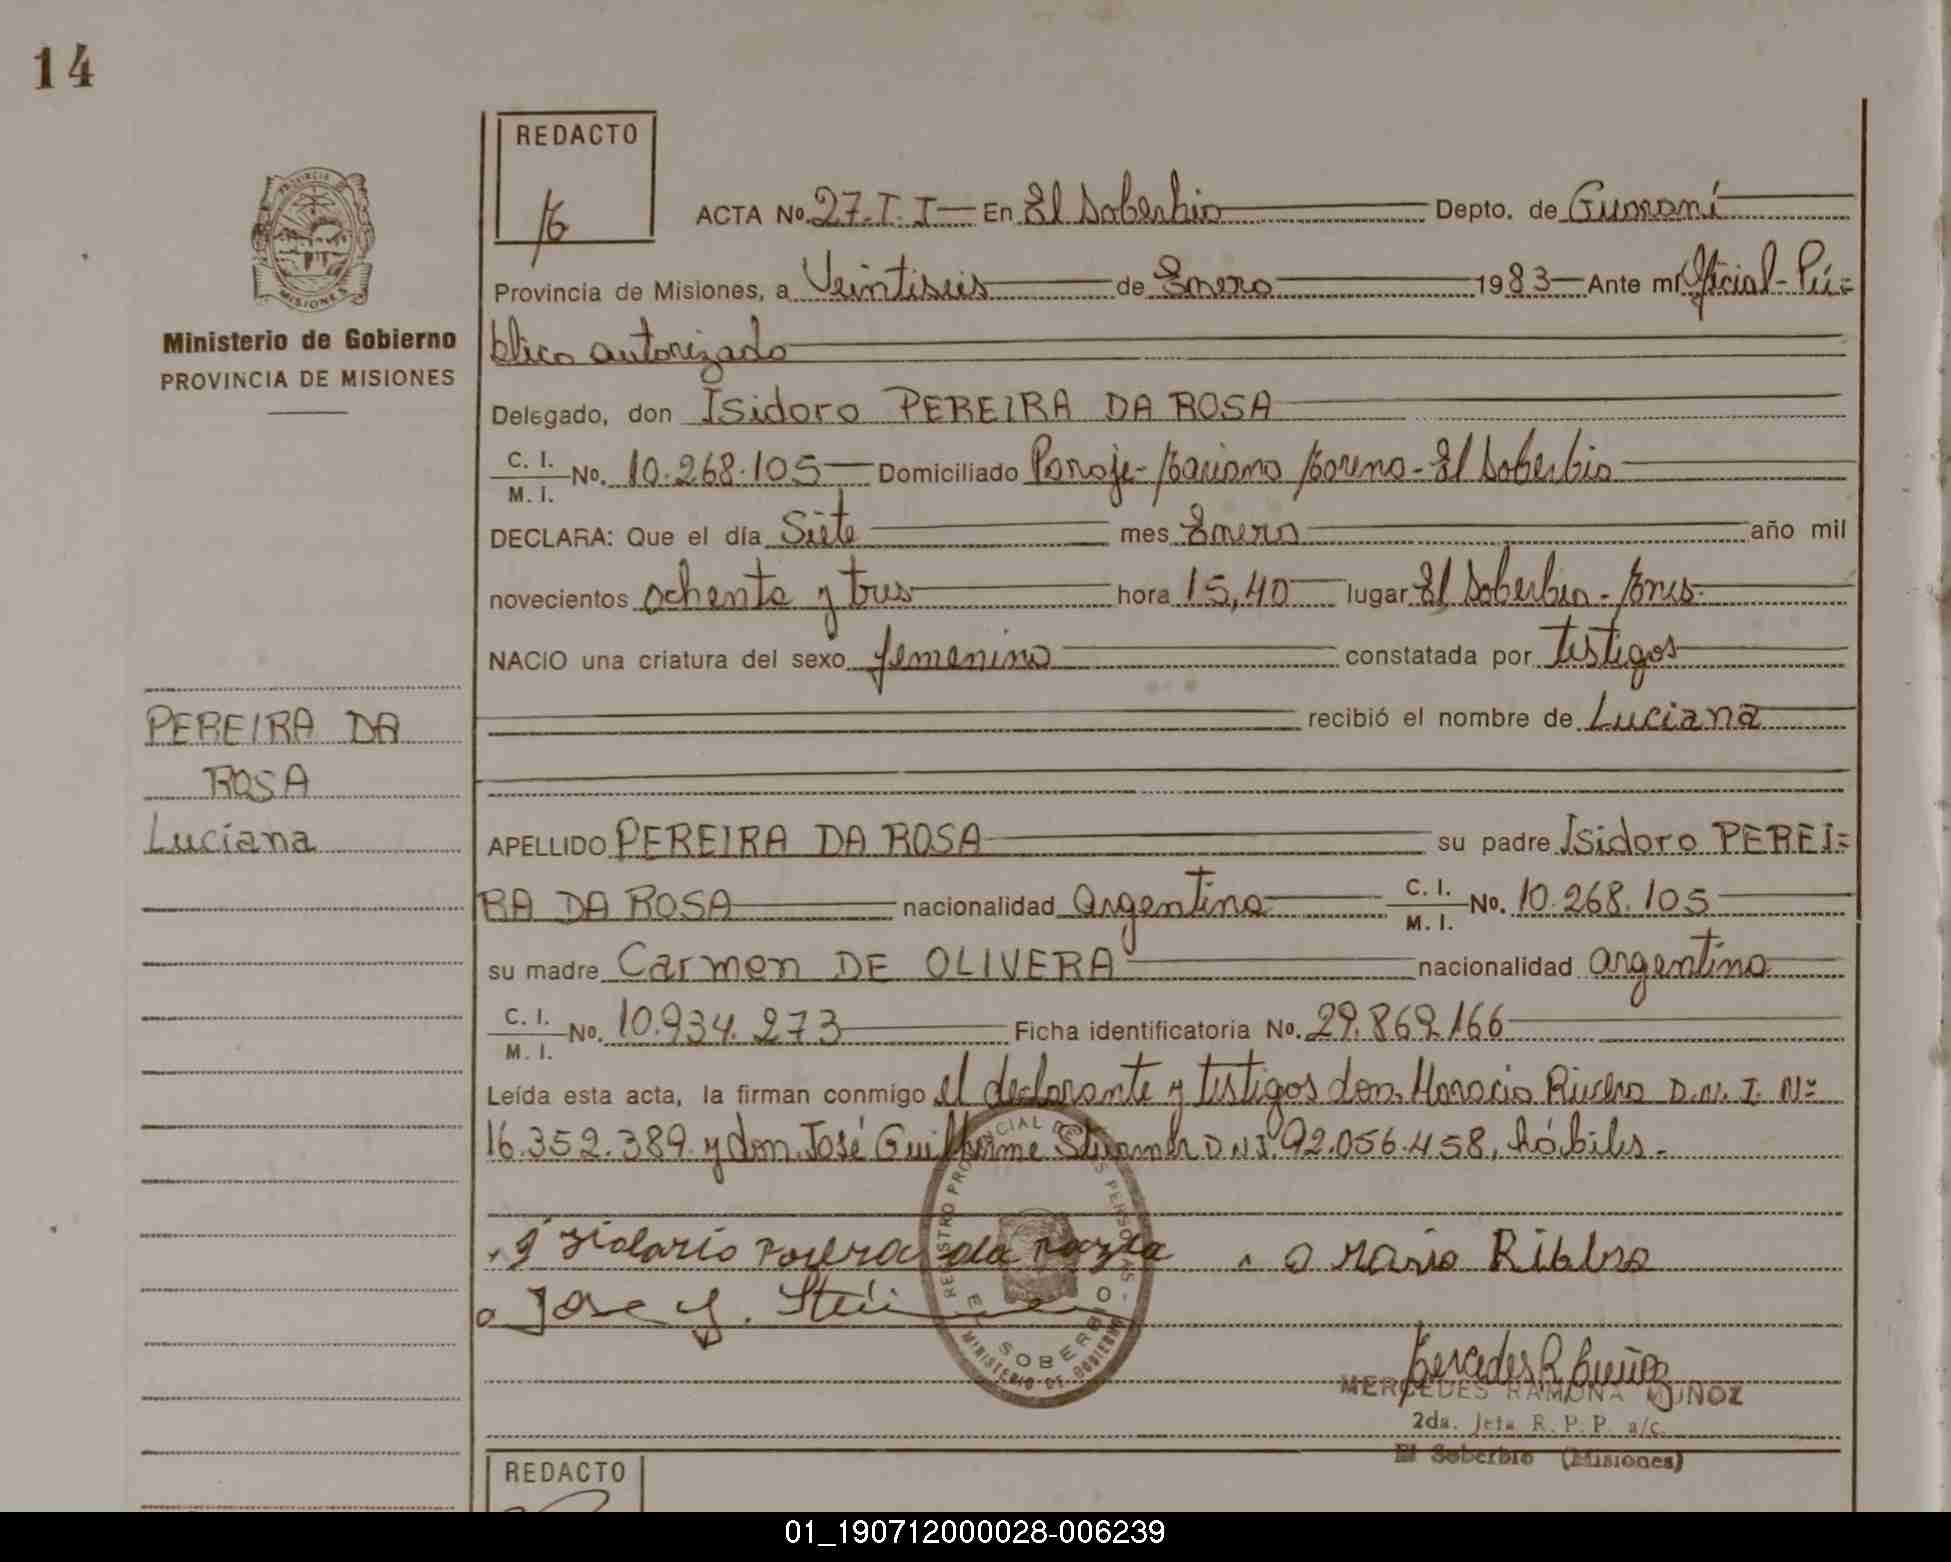 14
REDACTO
ACTA No. 27. T. I En El Soberbio Depto. de Guaraní
Provincia de Misiones, a Veintiseis de Enero 1983 Ante mí Oficial-Pú=
blico autorizado
Ministerio de Gobierno
PROVINCIA DE MISIONES
Delegado, don Isidoro PEREIRA DA ROSA
C. I.
M. I. No. 10.268.105 Domiciliado Paraje-Mariano Moreno-El Soberbio
DECLARA: Que el día Siete mes Enero año mil
novecientos ochenta y tres hora 15,40 lugar El Soberbio-Mnes.
NACIO una criatura del sexo femenino constatada por testigos
recibió el nombre de Luciana
PEREIRA DA
ROSA
Luciana
APELLIDO PEREIRA DA ROSA su padre Isidoro PEREI=
RA DA ROSA nacionalidad Argentina C. I.
M. I. No. 10.268.105
su madre Carmen DE OLIVERA nacionalidad argentina
C. I.
M. I. No. 10.934.273 Ficha identificatoria No. 29.869.166
Leída esta acta, la firman conmigo el declarante y testigos don. Horacio Rivero D.N.I. Nº
16.352.389. y don. José Guilherme D.N.I. 92.056.458, hábiles.-
REGISTRO PROVINCIAL DE LAS PERSONAS
EL SOBERBIO
MINISTERIO DE GOBIERNO
da
Jose G.
MERCEDES RAMONA MUÑOZ
2da. Jefa R. P. P. a/c.
El Soberbio (Misiones)
REDACTO
01_190712000028-006239